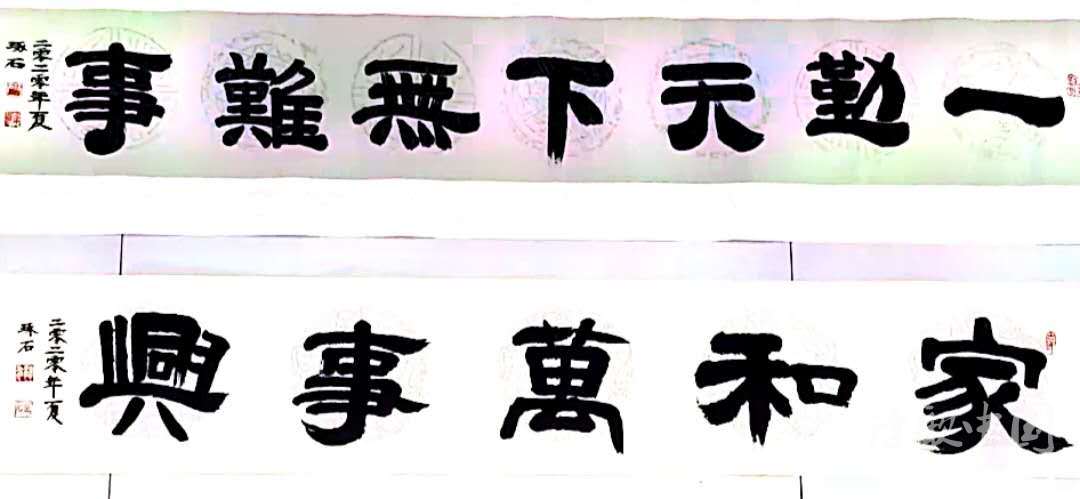 一勤天下無難事
二零二零年夏
琢石
家和萬事興
二零二零年夏
琢石